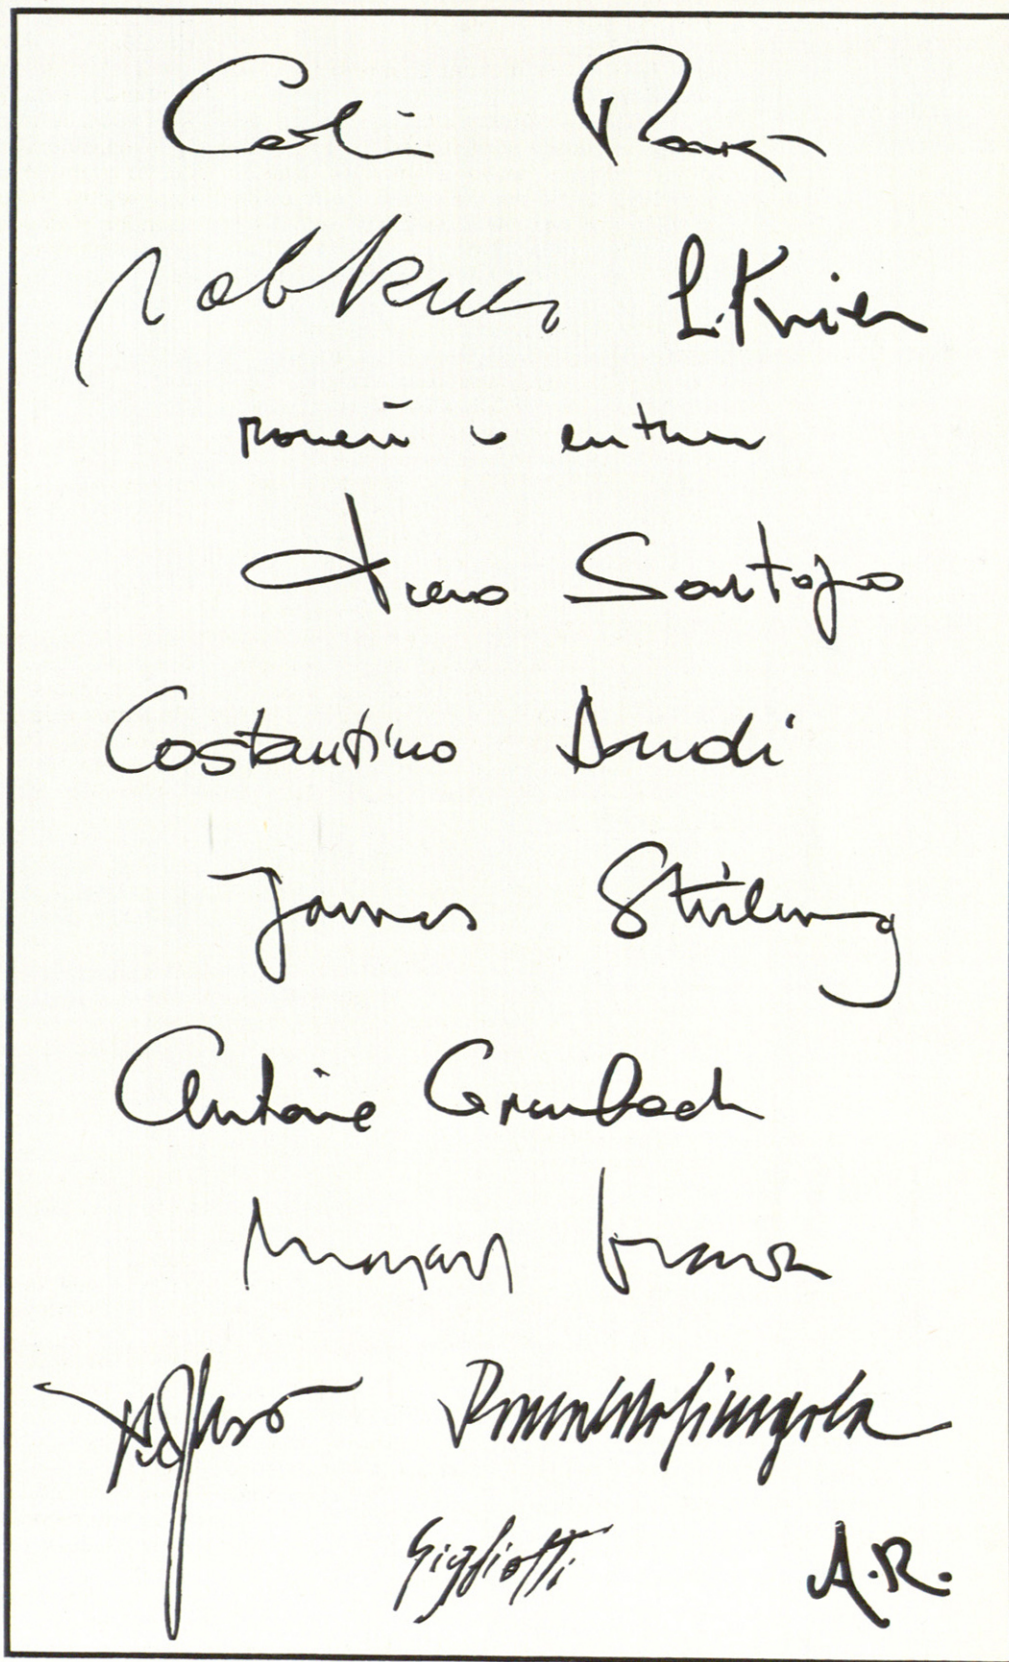 Colin Rowe
rob Krier L. Krier
Piero Sartogo
Costantino Dardi
James Stirling
Antoine Grumbach
Michael Graves
Romaldo Giurgola
Gigliotti A.R.